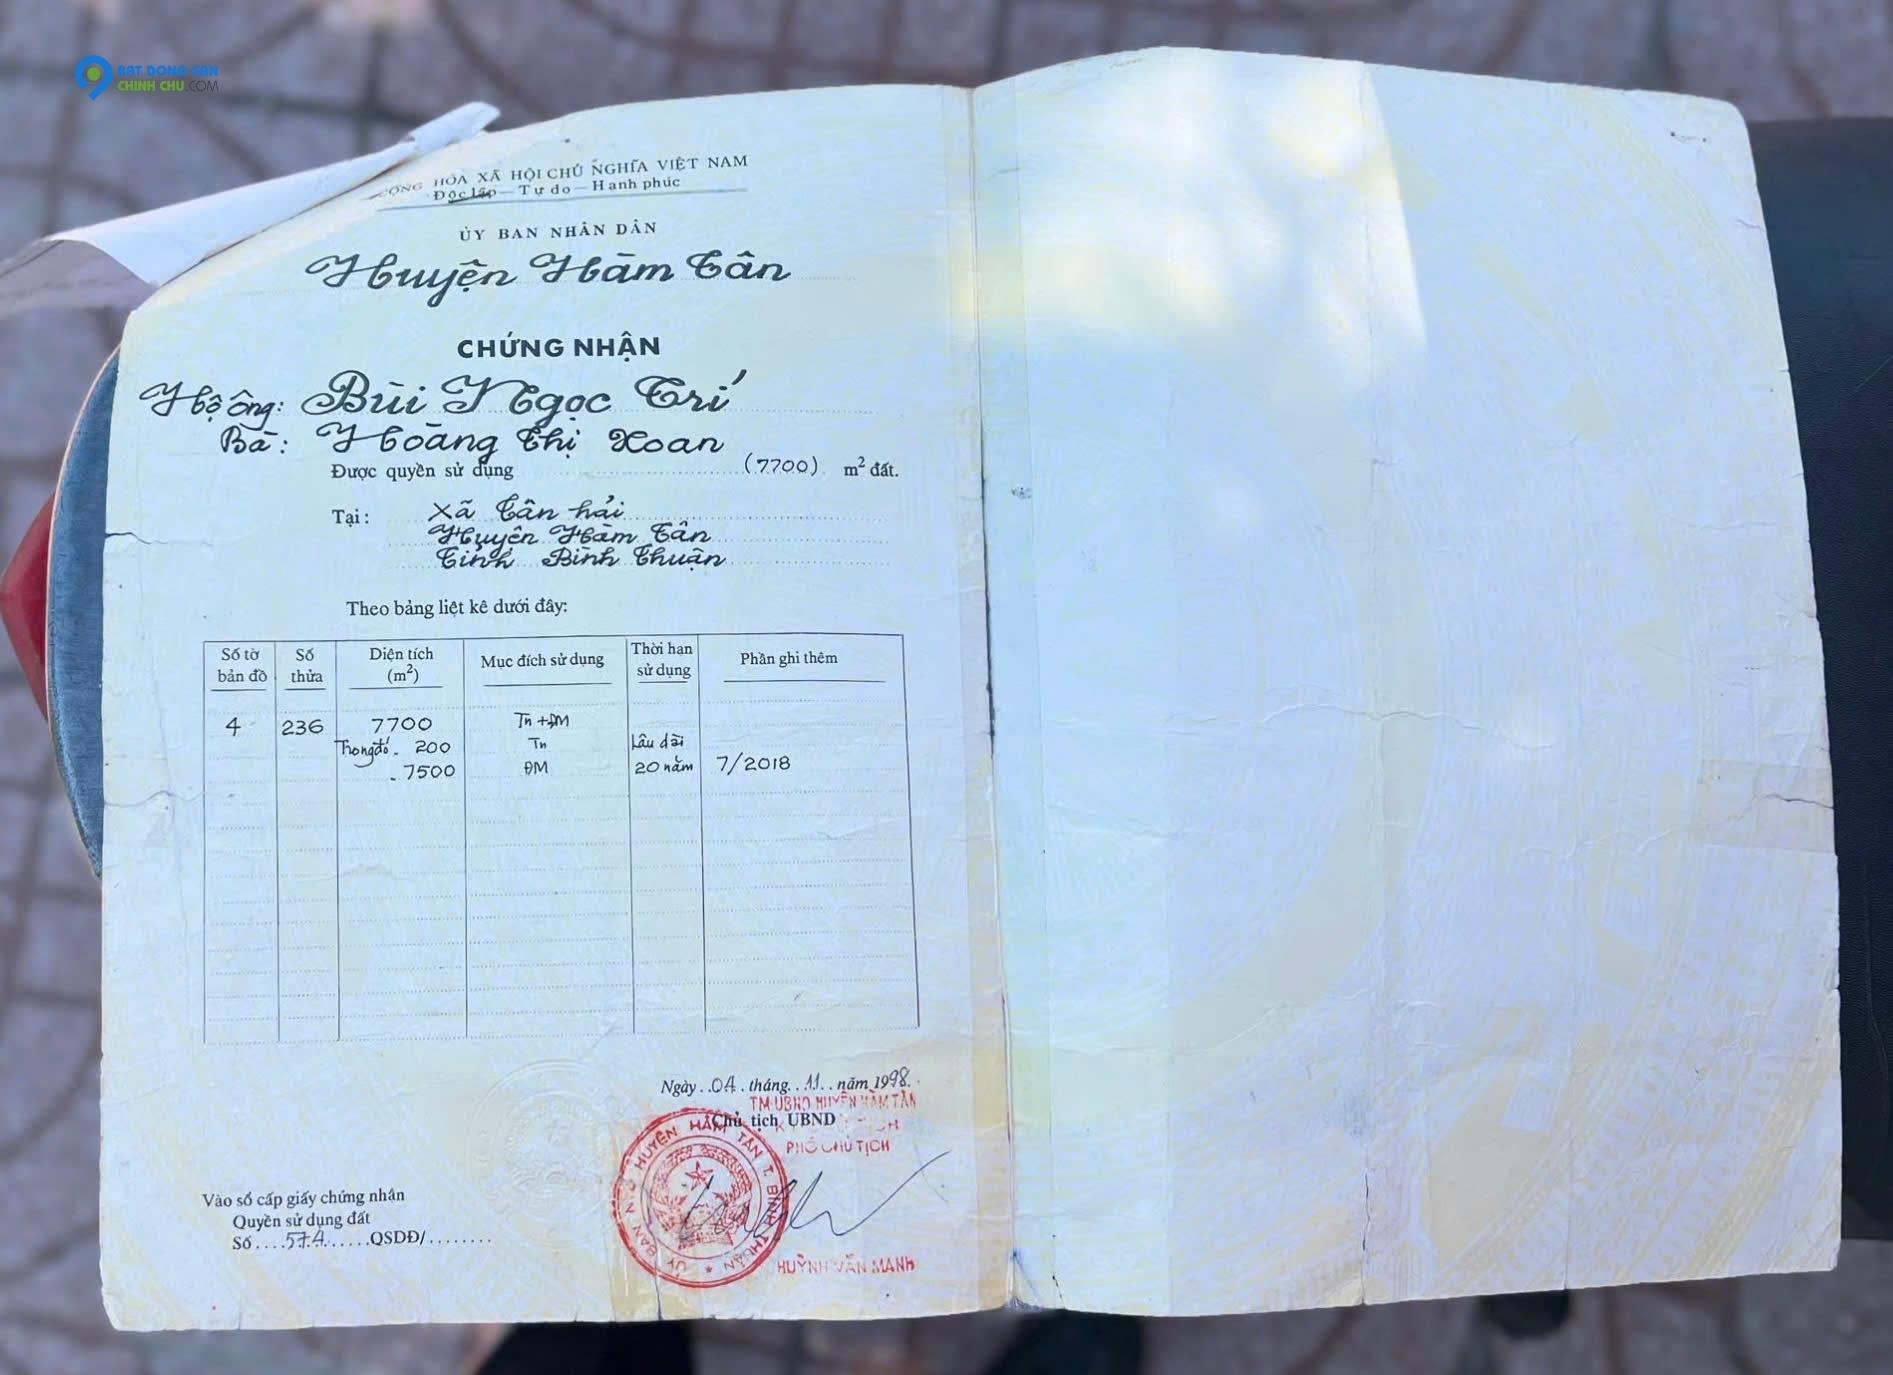 BAT DONG SAN
CHINH CHU.COM
CỘNG HÒA XÃ HỘI CHỦ NGHĨA VIỆT NAM
Độc lập – Tự do – Hanh phúc
ỦY BAN NHÂN DÂN
Huyện Hàm Tân
CHỨNG NHẬN
Hộ ông: Bùi Ngọc Trí
Bà: Hoàng Thị Xoan
Được quyền sử dụng (7700) m² đất.
Tại: Xã Tân hải
Huyện Hàm Tân
Tỉnh Bình Thuận
Theo bảng liệt kê dưới đây:
Số tờ bản đồ Số thửa Diện tích (m²) Mục đích sử dụng Thời hạn sử dụng Phần ghi thêm
4 236 7700 Tn+ĐM
Trong đó - 200 Tn Lâu dài
- 7500 ĐM 20 năm 7/2018
Ngày..04. tháng..11.. năm 1998.
TM UBND HUYỆN HÀM TÂN
Chủ tịch UBND
PHÓ CHỦ TỊCH
ỦY BAN N.D HUYỆN HÀM TÂN T. BÌNH THUẬN
HUỲNH VĂN MANH
Vào sổ cấp giấy chứng nhận
Quyền sử dụng đất
Số....574......QSDĐ/........